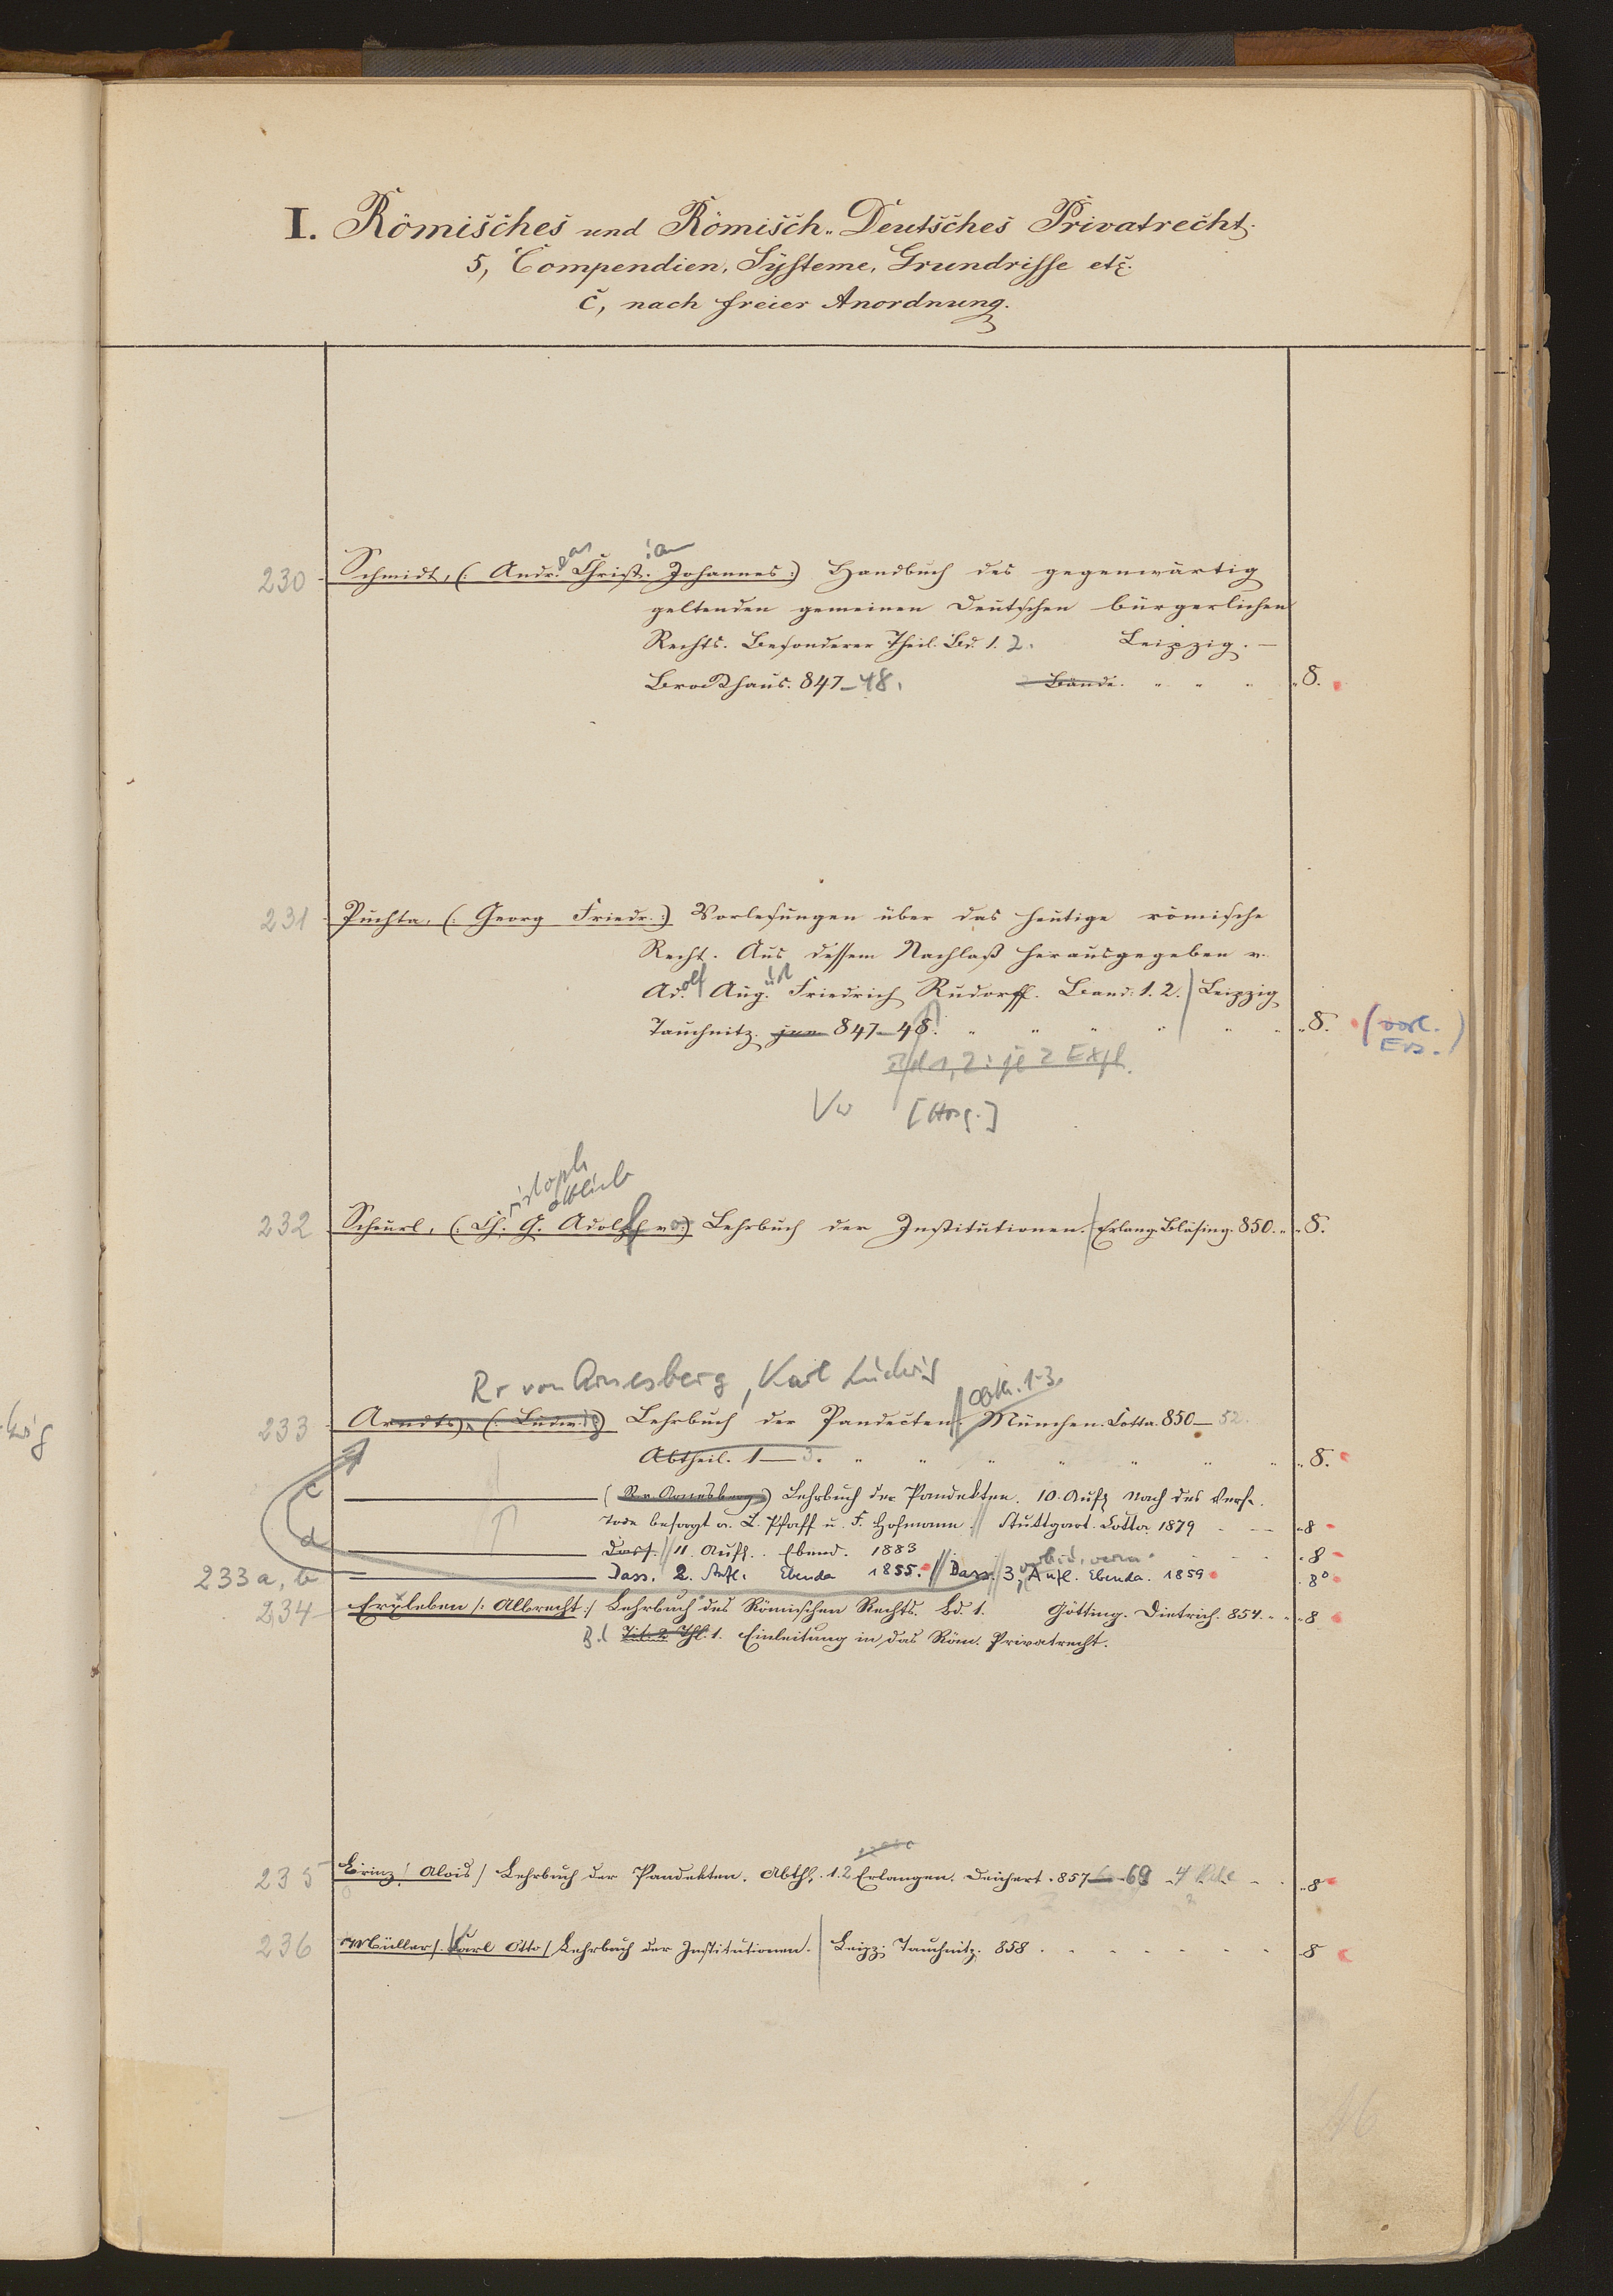 I. Römisches und Römisch-Deutsches Privatrecht.
5, Compendien, Systeme, Grundrisse etc.
c, nach freier Anordnung.
230 Schmidt, (: Andr. Christ. Johannes :) Handbuch des gegenwärtig
geltenden gemeinen Deutschen bürgerlichen
Rechts. Besonderer Theil. Bd. 1. 2. Leipzig. —
Brockhaus. 847-48. Bände. 8.
231 Puchta, (: Georg Friedr. :) Vorlesungen über das heutige römische
Recht. Aus dessem Nachlaß herausgegeben v.
Adolf August Friedrich Rudorff. Band: 1. 2. Leipzig
Tauchnitz. jun 847-48. 8. (vorl.
Ers.)
Bd 1, 2: je 2 Expl.
Vw [Hrsg.]
ristoph
ottlieb
232 Scheurl, (: Ch. G. Adolph v. :) Lehrbuch der Institutionen. Erlang. Bläsing. 850. 8.
Rr von Arnesberg, Karl Ludwig
Abth. 1-3.
233 Arndts, (: Ludwig) Lehrbuch der Pandecten. München. Cotta. 850—52.
Abtheil. 1—3. 8.
c (Rr. Arnesberg) Lehrbuch der Pandekten. 10. Aufl. Nach des Verf.
Tode besorgt v. L. Pfaff u. F. Hofmann. Stuttgart. Cotta 1879 8
d Dass. 11. Aufl. Ebend. 1883 8
233 a, b Dass. 2. Aufl. Ebenda 1855. Dass. 3. Aufl. Ebenda. 1859 8°
234 Erxleben /: Albrecht :/ Lehrbuch des Römischen Rechts. Bd. 1. Götting. Dietrich. 854. 8
Bd Tit. 2. Thl. 1. Einleitung in das Röm. Privatrecht.
235 Brinz / Alois / Lehrbuch der Pandekten. Abthl. 1. 2 Erlangen. Deichert. 857—69 4 8
236 Müller /. Karl Otto / Lehrbuch der Institutionen. Leipz. Tauchnitz. 858 8